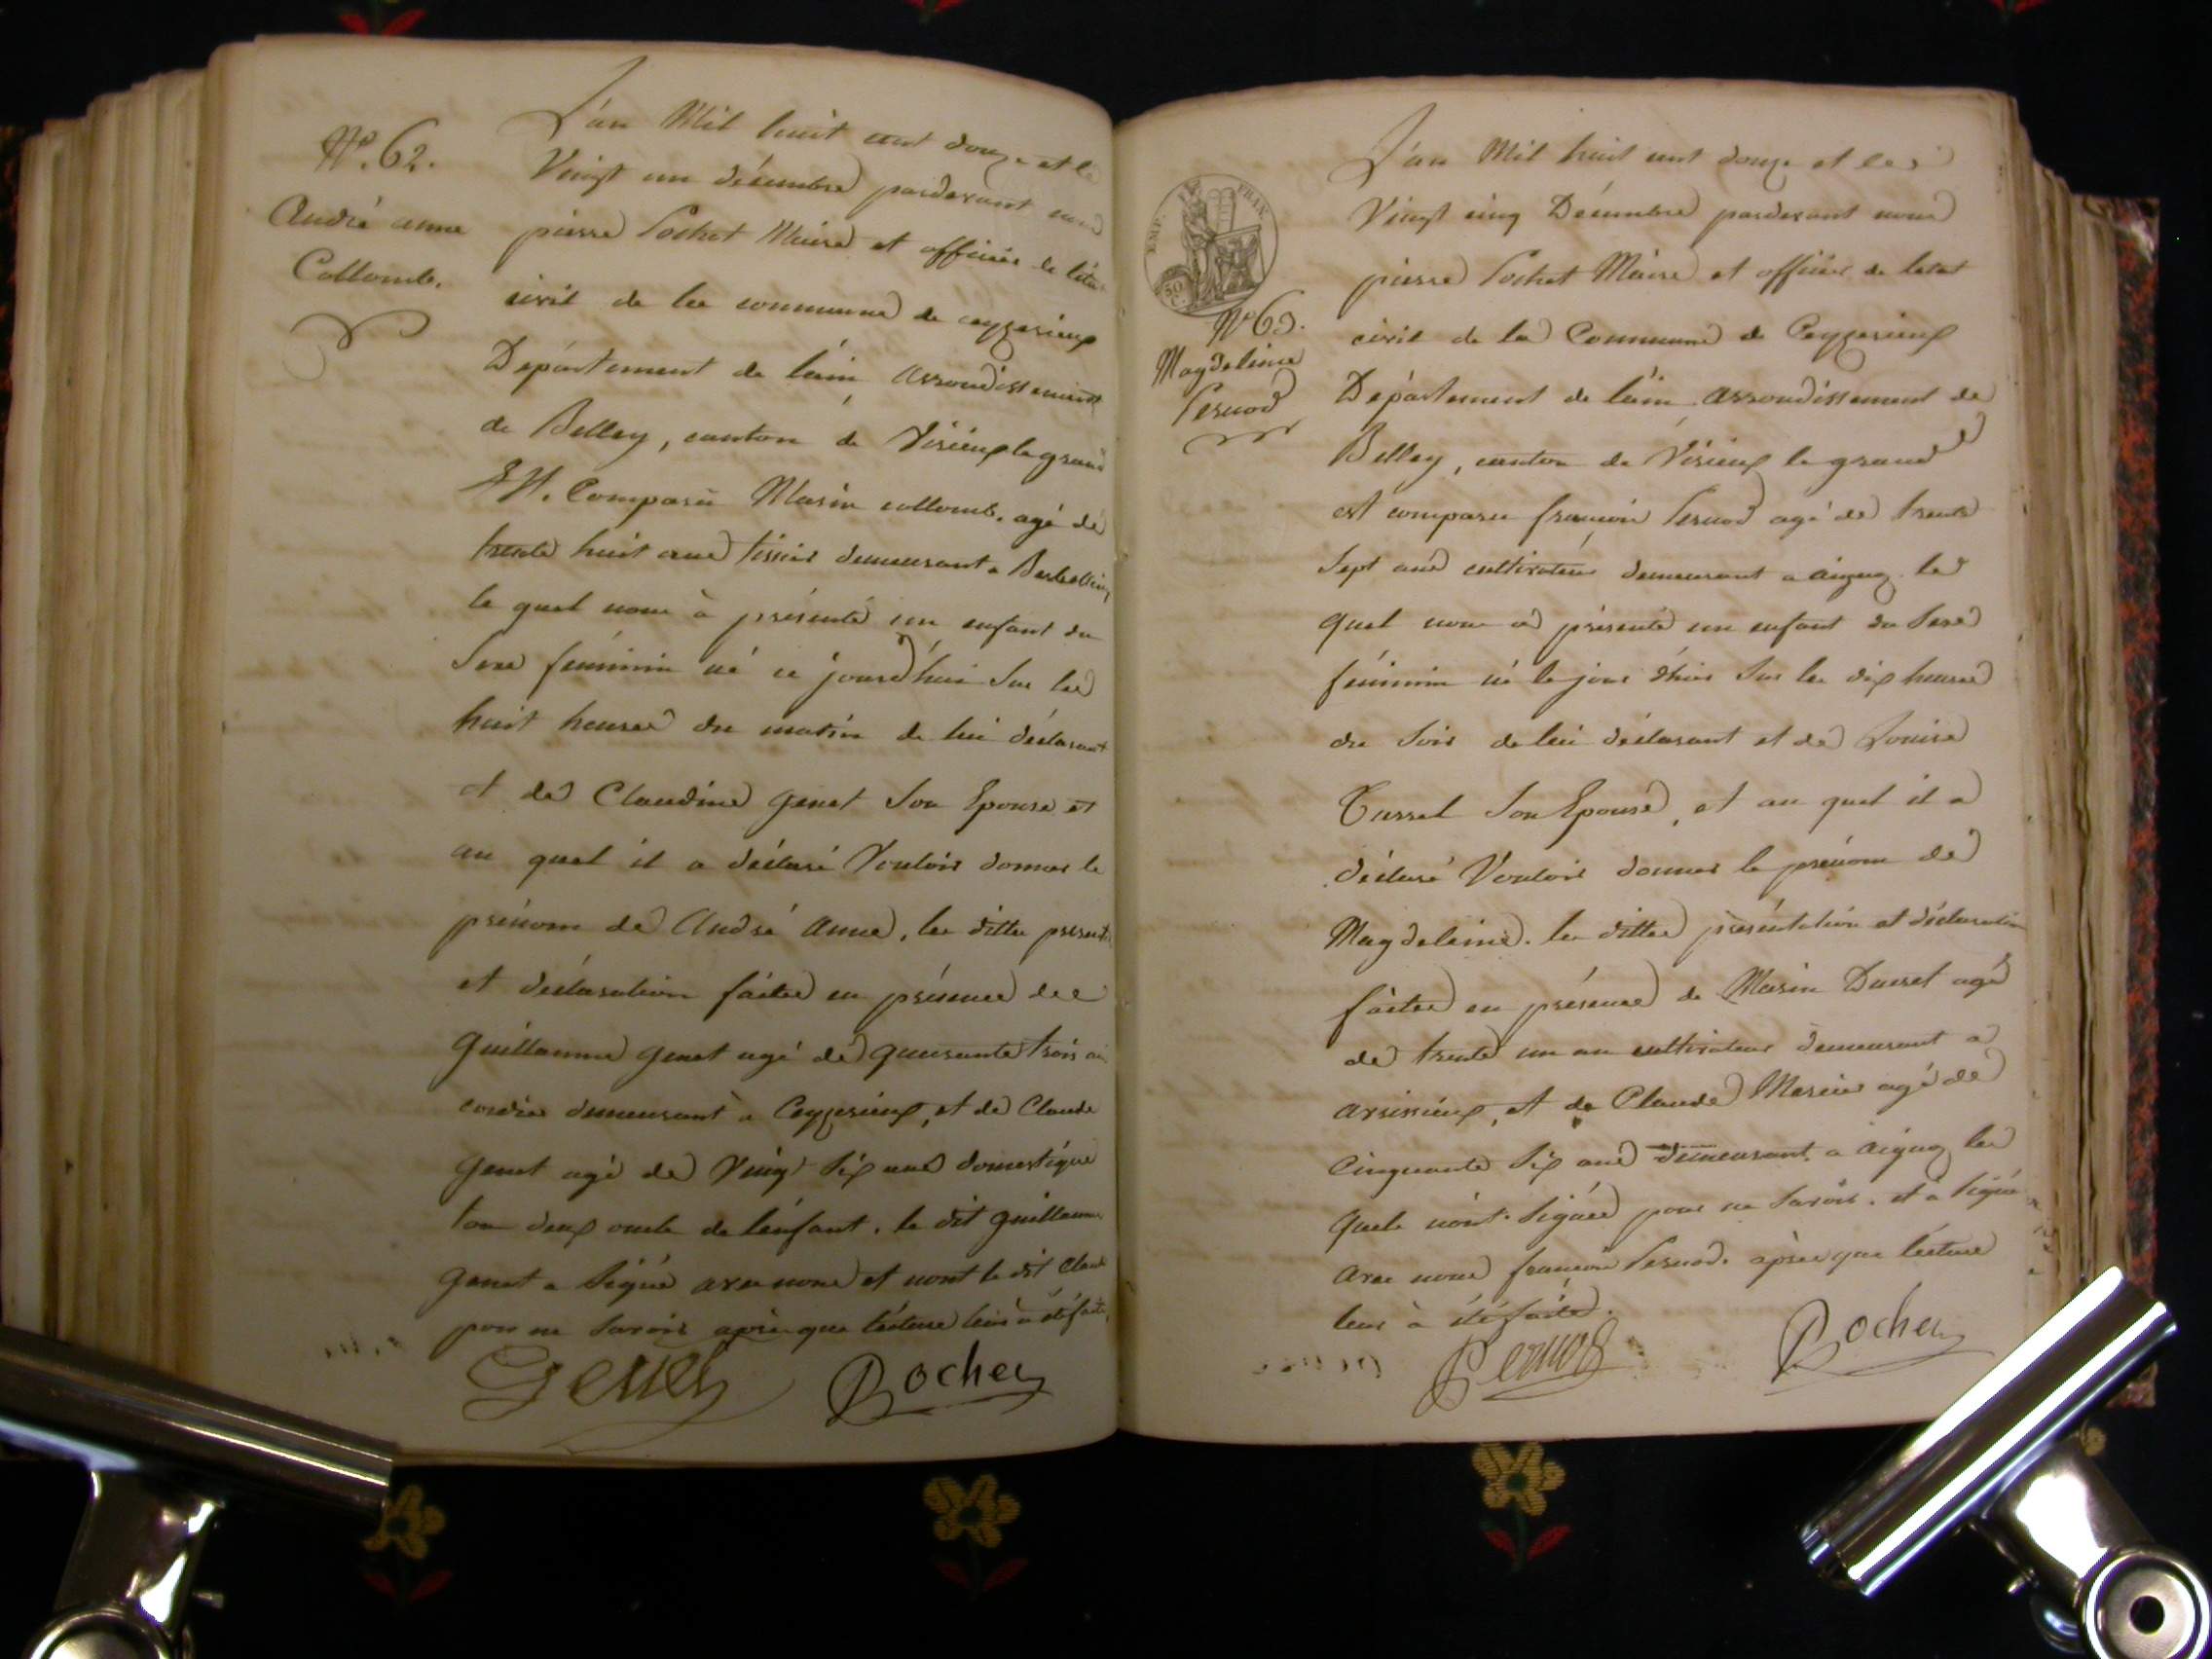 N°. 62.
André anne
Collomb.
L'an Mil huit cent douze et le
Vingt un décembre pardevant nous
pierre Pochet Maire et officier de l'état
civil de la commune de ceyzerieux
Département de l'ain arrondissement
de Belley, canton de Virieux le grand
Est Comparu Marin collomb. agé de
trente huit ans tissier demeurant a
le quel nous à présenté un enfant du
sexe féminin né ce jourd'hui sur les
huit heures du matin de lui déclarant
et de Claudine genet son Epouse et
au quel il a déclaré Vouloir donner le
prénom de André anne, les dittes present.
et déclaration faites en présence de
guillaume genet agé de quarante trois ans
cordier demeurant à Ceyzerieux, et de Claude
genet agé de Vingt six ans domestique
tou deux oncle de l'enfant. le dit guillaume
genet a signé avec nous et nont le dit Claude
pour ne savoir après que lecture leur à été faite.
Genet Pochet
EMP. FRAN.
50 C.
N° 63.
Magdeleine
Pernod
L'an Mil huit cent douze et les
Vingt cinq Décembre pardevant nous
pierre Pochet Maire et officier de l'etat
civil de la Commune de Ceyzerieux
Département de l'ain arrondissement de
Belley, canton de Virieux le grand
est comparu françois Pernod agé de trente
sept ans cultivateur demeurant a aignoz le
quel nous a présenté un enfant du sexe
féminin né le jour d'hier sur les dix heures
du soir de lui déclarant et de Louise
son Epouse, et au quel il a
déclaré Vouloir donner le prénom de
Magdeleine. les dittes présentation et déclaration
faites en présence de Marin Ducret agé
de trente un an cultivateur demeurant a
et de Claude Mercier agé de
Cinquante six ans demeurant a aignoz les
quels n'ont signés pour ne savoir. et a signé
avec nous françois Pernod. après que lecture
leur à été faite.
Pernod Pochet